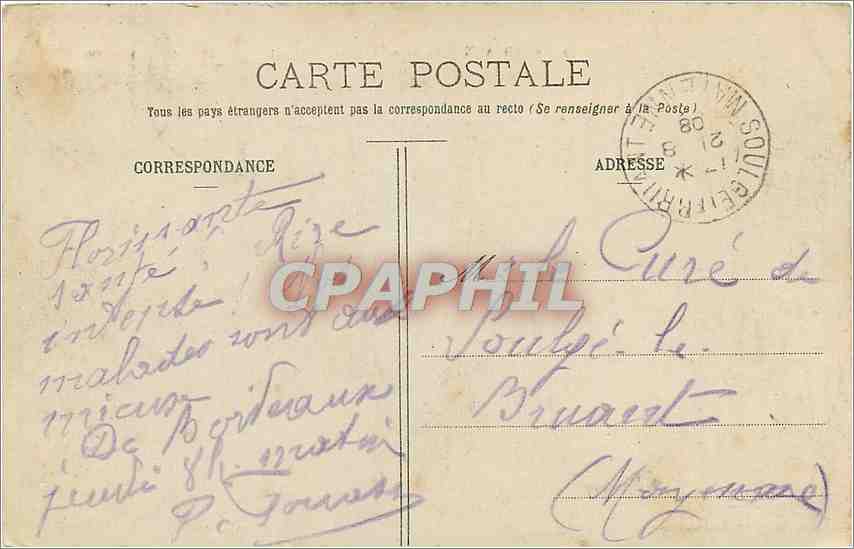 CARTE POSTALE
Tous les pays étrangers n'acceptent pas la correspondance au recto (Se renseigner à la Poste)
CORRESPONDANCE
ADRESSE
SOULGE-LE-BRUANT MAYENNE
21 8
08
Florissante
santé !
malades sont
mieux
De Bordeaux
jeudi 8h matin
P.
Mr le Curé de
Soulgé-le-
Bruant
(Mayenne)
CPAPHIL